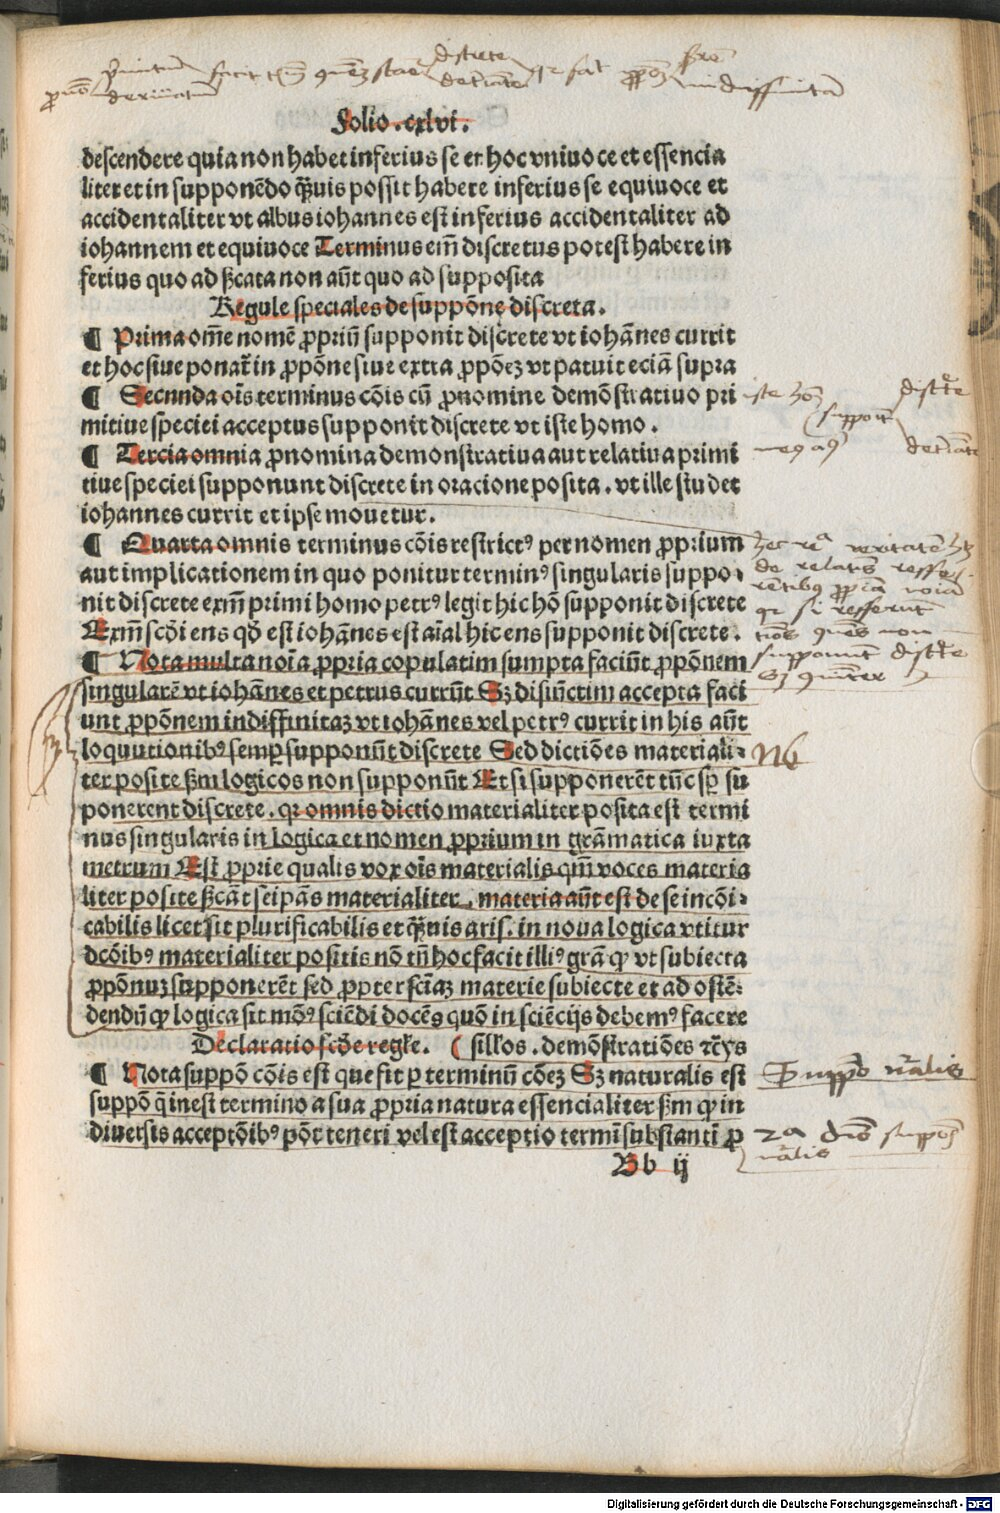 Folio .cxlvi.
descendere quia non habet inferius se et hoc vniuoce et essencia
liter et in supponēdo q̄uis possit habere inferius se equiuoce et
accidentaliter vt albus iohannes est inferius accidentaliter ad
iohannem et equiuoce Terminus em̄ discretus potest habere in
ferius quo ad ſcata non aūt quo ad supposita
Regule speciales de suppōne discreta.
¶ Prima om̄e nomē ꝓpriū supponit discrete vt iohānes currit
et hoc siue ponat̄ in ꝓpōne siue extra ꝓpōeꝫ vt patuit eciā supra
¶ Secunda oīs terminus cōis cū ꝓnomine demōstratiuo pri
mitiue speciei acceptus supponit discrete vt iste homo.
¶ Tercia omnia ꝓnomina demonstratiua aut relatiua primi
tiue speciei supponunt discrete in oracione posita. vt ille studet
iohannes currit et ipse mouetur.
¶ Quarta omnis terminus cōis restrictꝰ per nomen ꝓprium
aut implicationem in quo ponitur terminꝰ singularis suppo-
nit discrete exm̄ primi homo petrꝰ legit hic hō supponit discrete
Exm̄ scd̄i ens qd̄ est iohānes est aīal hic ens supponit discrete.
¶ Nota multa noīa ꝓpria copulatim sumpta faciūt ꝓpōnem
singularē vt iohānes et petrus currūt Sꝫ disiūctim accepta faci
unt ꝓpōnem indiffinitaꝫ vt iohānes vel petrꝰ currit in his aūt
loquutionibꝰ semꝑ supponūt discrete Sed dictiōes materiali-
ter posite ẜm logicos non supponūt Et si supponerēt tūc sꝑ su
ponerent discrete. qꝛ omnis dictio materialiter posita est termi
nus singularis in logica et nomen ꝓprium in grāmatica iuxta
metrum Est ꝓprie qualis vox oīs materialis qm̄ voces materia
liter posite ſcāt seipās materialiter. materia aūt est de se incōi-
cabilis licet sit plurificabilis et q̄uis aris. in noua logica vtitur
dcōibꝰ materialiter positis nō tn̄ hoc facit illiꝰ grā ꝙ vt subiecta
ꝓpōnuꝫ supponerēt sed ꝓpter sciāꝫ materie subiecte et ad ostē-
dendū ꝙ logica sit mōꝰ sciēdi docēs quō in sciēcijs debemꝰ facere
Declaratio scd̄e regle. ( sillōs. demōstratiōes ⁊c̄ꝫs
¶ Nota suppō cōis est que fit ꝑ terminū cōeꝫ Sꝫ naturalis est
suppō q̄ inest termino a sua ꝓpria natura essencialiter ẜm ꝙ in
diuersis acceptōibꝰ pōt teneri vel est acceptio termī substantī ꝓ
Bb ij
Nb
Digitalisierung gefördert durch die Deutsche Forschungsgemeinschaft - DFG